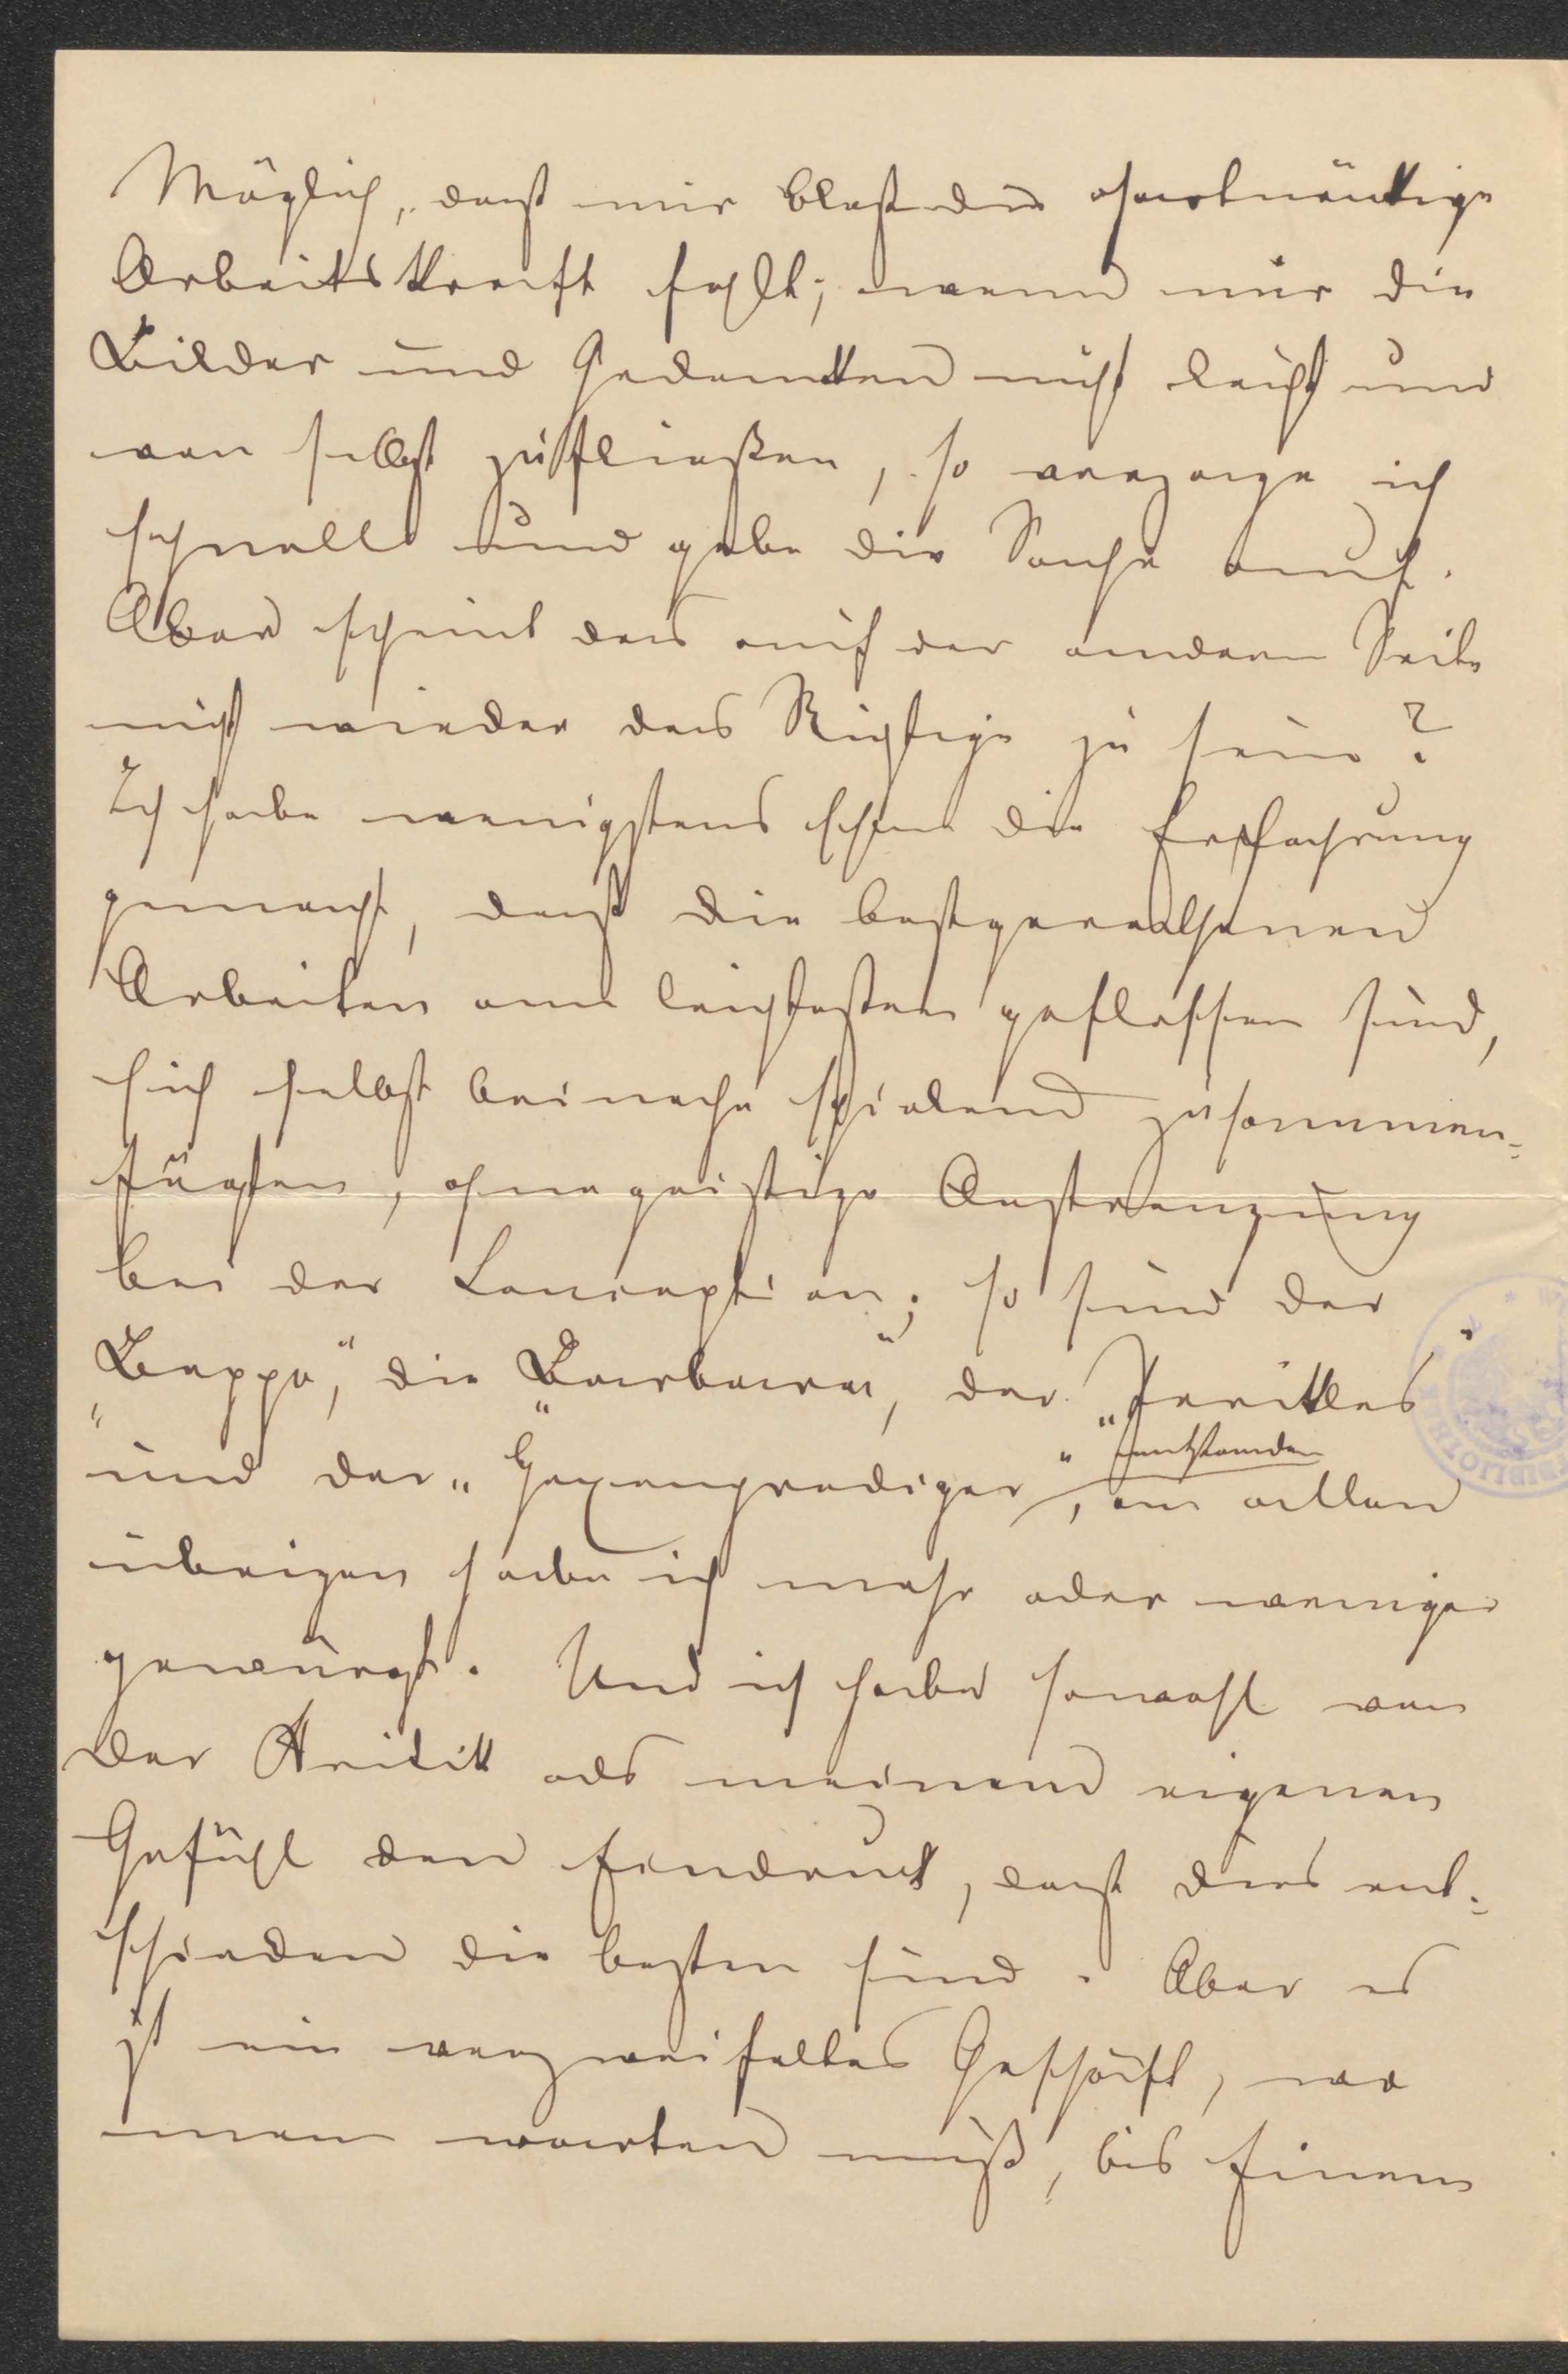 Möglich, daß mir bloß die hartnäckige
Arbeitskraft fehlt; wenn mir die
Bilder und Gedanken nicht leicht und
von selbst zufließen, so verzage ich
schnell und gebe die Sache auf.
Aber scheint das auf der andern Seite
nicht wieder das Richtige zu sein?
Ich habe wenigstens schon die Erfahrung
gemacht, daß die bestgerathenen
Arbeiten am leichtesten geflossen sind,
sich selbst beinahe spielend zusammen-
fügten, ohne geistige Anstrengung
bei der Conception; so sind der
„Beppo“, die „Barbara“, der „Perikles“
und der „Hexenprediger“ entstanden, an allen
übrigen habe ich mehr oder weniger
gewürgt. Und ich habe sowohl von
der Kritik als meinem eigenen
Gefühl den Eindruck, daß dies ent-
schieden die besten sind. Aber es
ist ein verzweifeltes Geschäft, wo
man warten muß, bis Einem